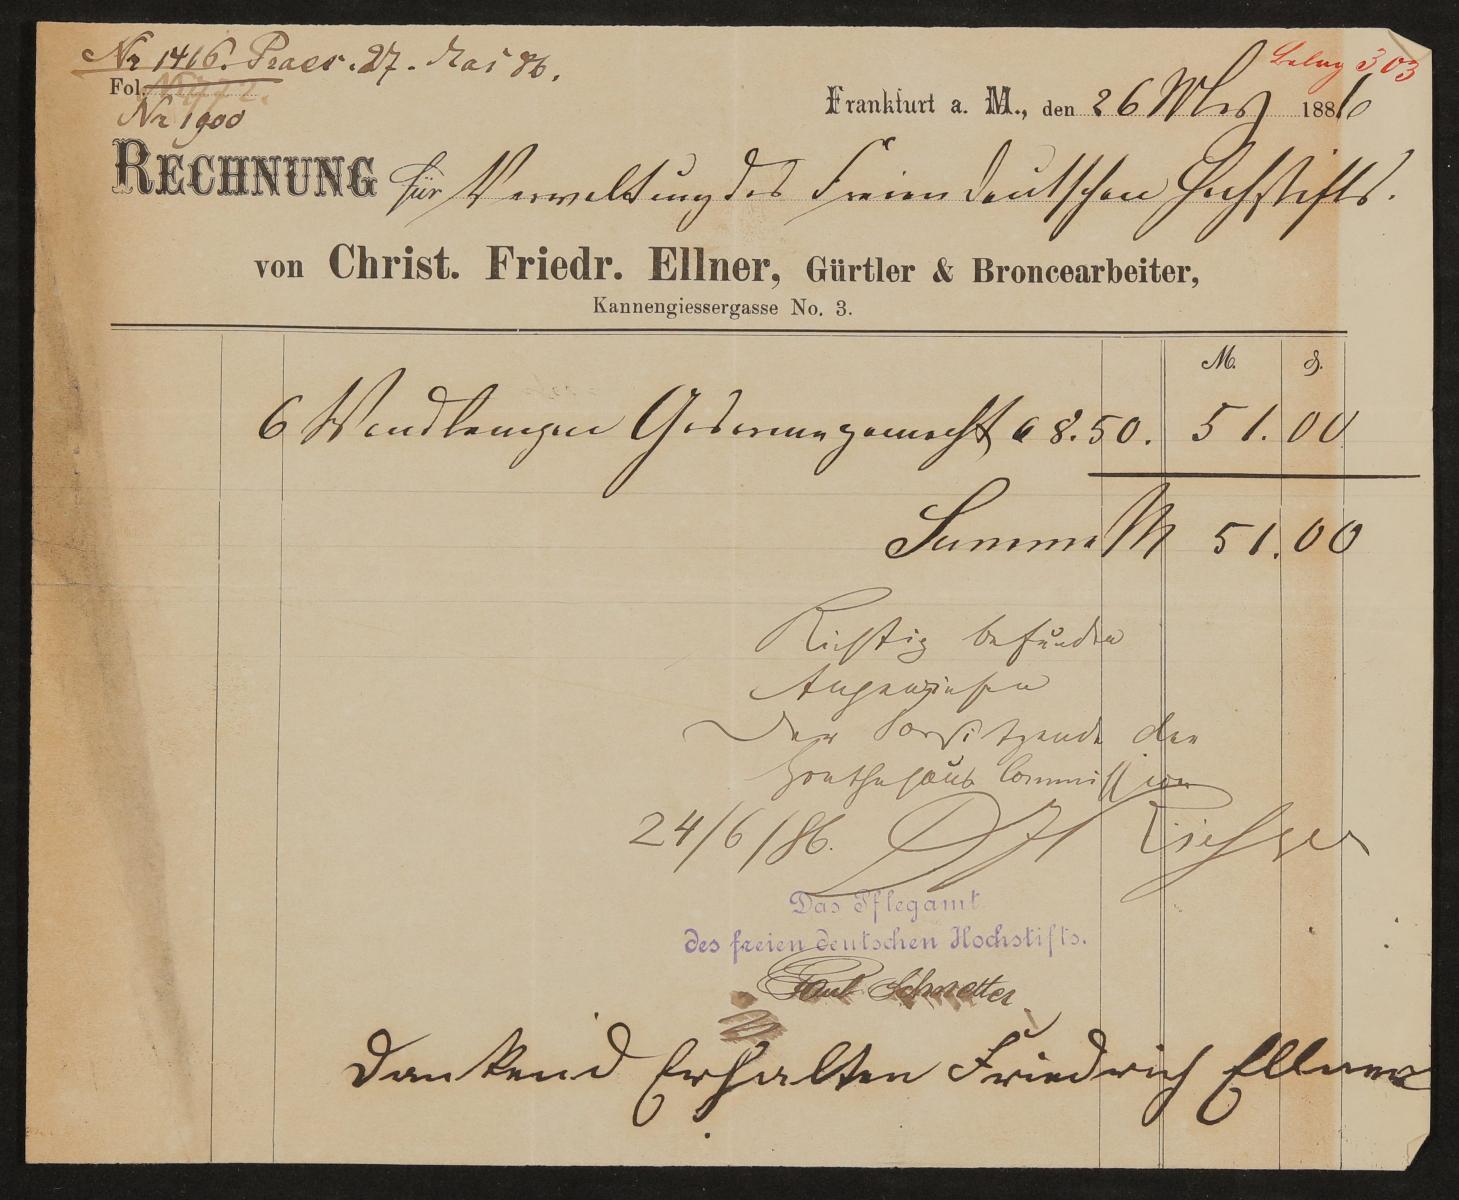 Nr 1416. Praes. 27. Mai 86.
Beleg 303
Fol.
Nr 1900
Frankfurt a. M., den 26 März 1886
RECHNUNG für Verwaltung des Freien deutschen Hochstifts.
von Christ. Friedr. Ellner, Gürtler & Broncearbeiter,
Kannengiessergasse No. 3.
M. ₰.
6 Wandlampen gemacht a 8.50. 51.00
Summa M 51.00
Richtig befunden
Angewiesen
Der Vorsitzende der
Goethehaus Commission
24/6/86.
Das Pflegamt
des freien deutschen Hochstifts.
Paul Schmetter
Dankend Erhalten Friedrich Ellner